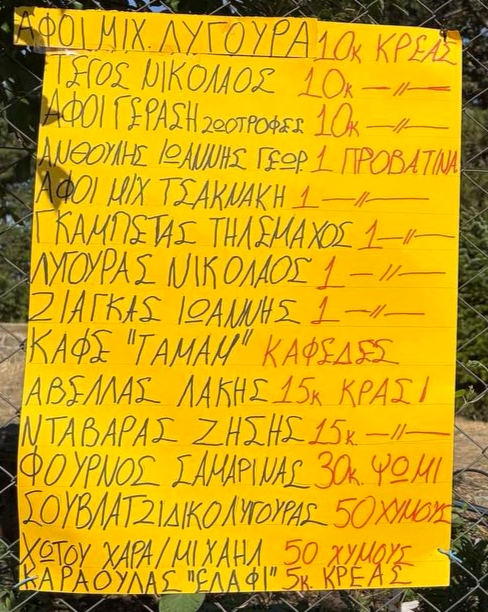 ΑΦΟΙ ΜΙΧ. ΛΥΓΟΥΡΑ 10κ ΚΡΕΑΣ
ΤΣΓΟΣ ΝΙΚΟΛΑΟΣ 10κ —//—
ΑΦΟΙ ΓΕΡΑΣΗ ΖΩΟΤΡΟΦΕΣ 10κ —//—
ΑΝΘΟΥΛΗΣ ΙΩΑΝΝΗΣ ΓΕΩΡ. 1 ΠΡΟΒΑΤΙΝΑ
ΑΦΟΙ ΜΙΧ ΤΣΑΚΝΑΚΗ 1 —//—
ΓΚΑΜΠΕΤΑΣ ΤΗΛΕΜΑΧΟΣ 1 —//—
ΛΥΓΟΥΡΑΣ ΝΙΚΟΛΑΟΣ 1 —//—
ΖΙΑΓΚΑΣ ΙΩΑΝΝΗΣ 1 —//—
ΚΑΦΕ "ΤΑΜΑΜ" ΚΑΦΕΔΕΣ
ΑΒΕΛΛΑΣ ΛΑΚΗΣ 15κ ΚΡΑΣΙ
ΝΤΑΒΑΡΑΣ ΖΗΣΗΣ 15κ. —//—
ΦΟΥΡΝΟΣ ΣΑΜΑΡΙΝΑΣ 30κ. ΨΩΜΙ
ΣΟΥΒΛΑΤΖΙΔΙΚΟ ΛΥΓΟΥΡΑΣ 50 ΧΥΜΟΥΣ
ΧΩΤΟΥ ΧΑΡΑ/ΜΙΧΑΗΛ 50 ΧΥΜΟΥΣ
ΚΑΡΑΟΥΛΑΣ "ΕΛΑΦΙ" 5κ. ΚΡΕΑΣ